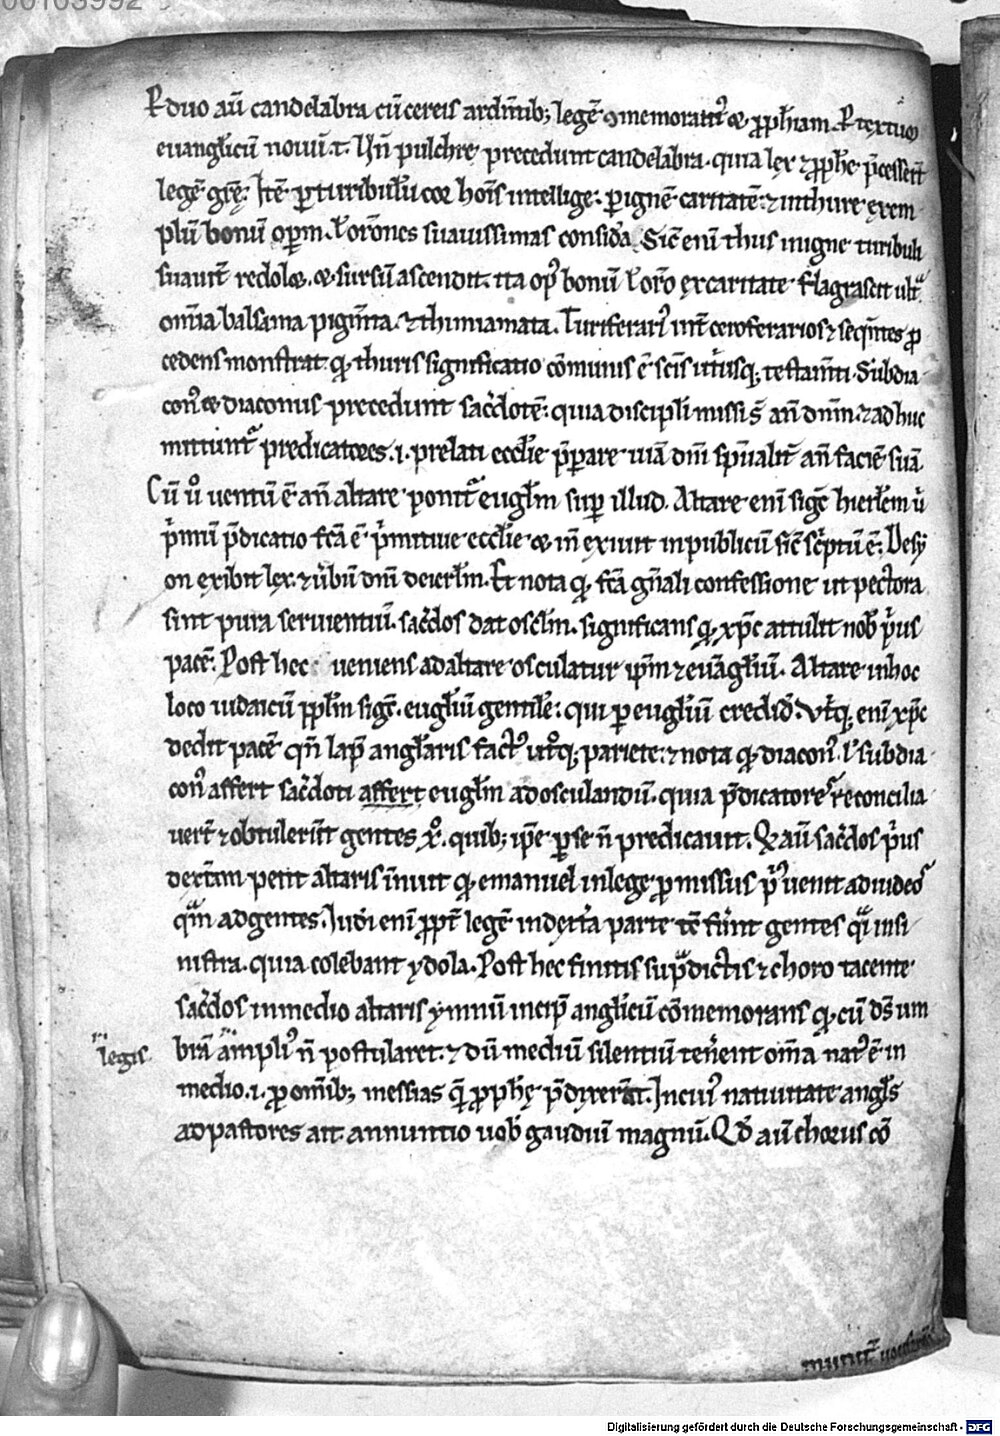 00103992
P duo aū candelabra cū cereis ardn̄tib; legē ꝯmemorant᷑ & ꝓph̄iam. P textuꝫ
euangl̄icū nouū. t. Un̄ pulchre precedunt candelabra. quia lex ⁊ ꝓph̄e p̄cesser̄t
legē gr̄ę. Itē ꝑ turibulū cor hoīs intellige. ꝑ ignē caritatē. ⁊ in thure exem
plū bonū oꝑum. ł or̄ones suauissimas consid̄a. Sic̄ eni thus in igne turibuli
suauit̄ redolet. & sursū ascendit. ita opꝰ bonū ł or̄o ex caritate flagrascit ult᷑
om̄ia balsama pigm̄ta. ⁊ thimiamata. Turiferariꝰ int̄ ceroferarios ⁊ seqn̄tes ꝓ
cedens monstrat qd thuris significatio cōmunis ē scīs utriusq; testam̄ti. Subdia
conꝰ & diaconus precedunt sac̄dotē. quia discipli missi s̄ an̄ dn̄m. ⁊ adhuc
mittunt᷑ predicatores .i. prelati eccl̄ie p̄parare uiā dn̄i spūalit̄ an̄ faciē suā.
Cū ů uentū ē an̄ altare ponit᷑ eugl̄m suꝑ illud. Altare eni sigt̄ hierl̄em ů
pͥmū p̄dicatio fc̄a ē pͥmitiue eccl̄ie & in̄ exiuit in publicū sic̄ scͥptū ē. De sy
on exibit lex. ⁊ ůbū dn̄i de ierl̄m. Et nota qd fc̄a gn̄ali confessione ut pectora
sint pura seruientiū. sac̄dos dat oscl̄m. significans qd xp̄c attulit nob̄ pͥus
pacē. Post hec ueniens ad altare osculatur ipm̄ ⁊ euāgl̄iū. Altare in hoc
loco iudaicū ꝓpl̄m sigt̄. eugl̄iū gentile. qui ꝑ eugl̄iū credid̄. Vt̄q; eni xp̄c
dedit pacē qn̄ lap̄ anglaris fact᷑ utͦq; pariete. ⁊ nota qd diaconꝰ ł subdia
conꝰ affert sac̄doti affert eugl̄m ad osculandū. quia p̄dicatores reconcilia
uer̄t ⁊ obtuler̄t gentes xͦ. quib; ip̄e ꝑ se n̄ predicauit. Qd aū sac̄dos pͥus
dext̄am petit altaris īnuit qd emanuel in lege ꝓmissus pͥꝰ uenit ad iudeos
qͣm ad gentes. Iudei eni ꝓpt̄ legē in dextͣa parte tc̄ fūnt gentes qͣi in si
nistra. quia colebant ydola. Post hec finitis supͣdictis ⁊ choro tacente
sac̄dos in medio altaris ymnū incip̄ angl̄icū cōmemorans qd cū ds̄ um
brā ampliꝰ n̄ postularet. ⁊ dū mediū silentiū tenerent om̄a natꝰ ē in
legis
medio .i. ꝓ om̄ib; messias qͥ ꝓph̄ę p̄dixerant. In cuiꝰ natiuitate angl̄s
ad pastores ait. annuntio uob̄ gaudiū magnū. Qd̄ aū chorus cō
Digitalisierung gefördert durch die Deutsche Forschungsgemeinschaft - DFG